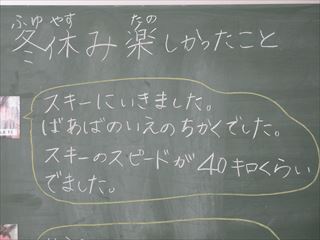 ふゆやす たの
冬休み楽しかったこと
スキーにいきました。
ばあばのいえのちかくでした。
スキーのスピードが40キロくらい
でました。